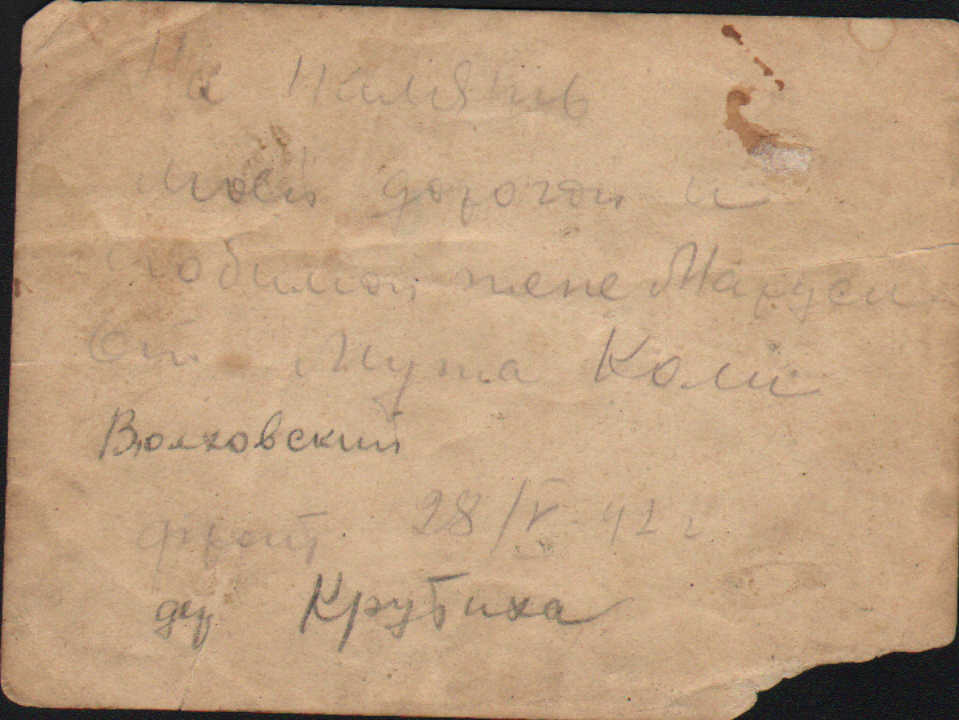 На память
моей дорогой и
любимой жене Маруси
От Мужа Коли
Волховский
фронт 28/V-42 г
дер Крутиха